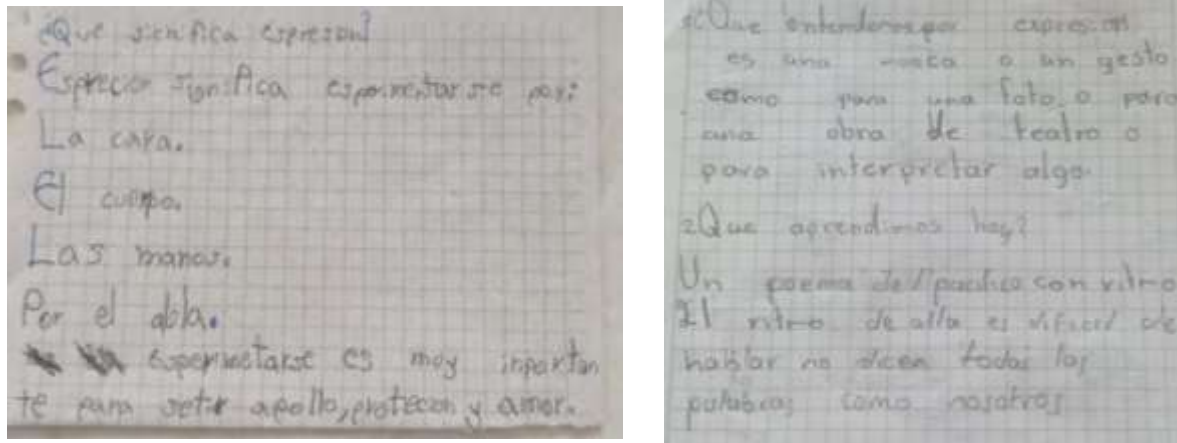 ¿Que significa espresion?
Esprecion significa esperimentarse por:
La cara.
El cuerpo.
Las manos.
Por el abla.
esperimetarse es moy inportan
te para setir apollo, protecon y amor.
¿Que entendemos por expresion
es una mueca o un gesto
como para una foto o para
una obra de teatro o
para interpretar algo.
¿Que aprendimos hoy?
Un poema del pacifico con ritmo
El ritmo de alla es dificil de
hablar no dicen todas las
palabras como nosotros